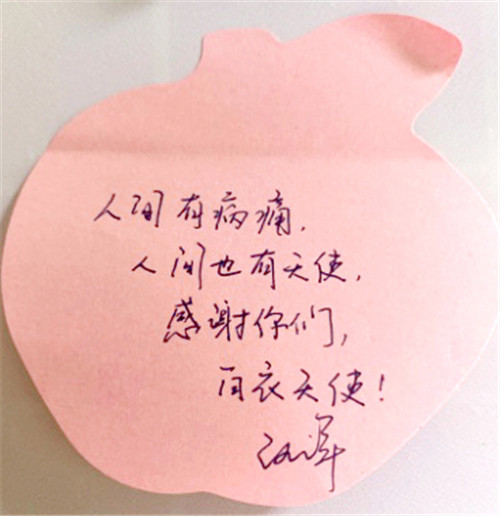 人间有病痛.
人间也有天使.
感谢你们,
白衣天使!